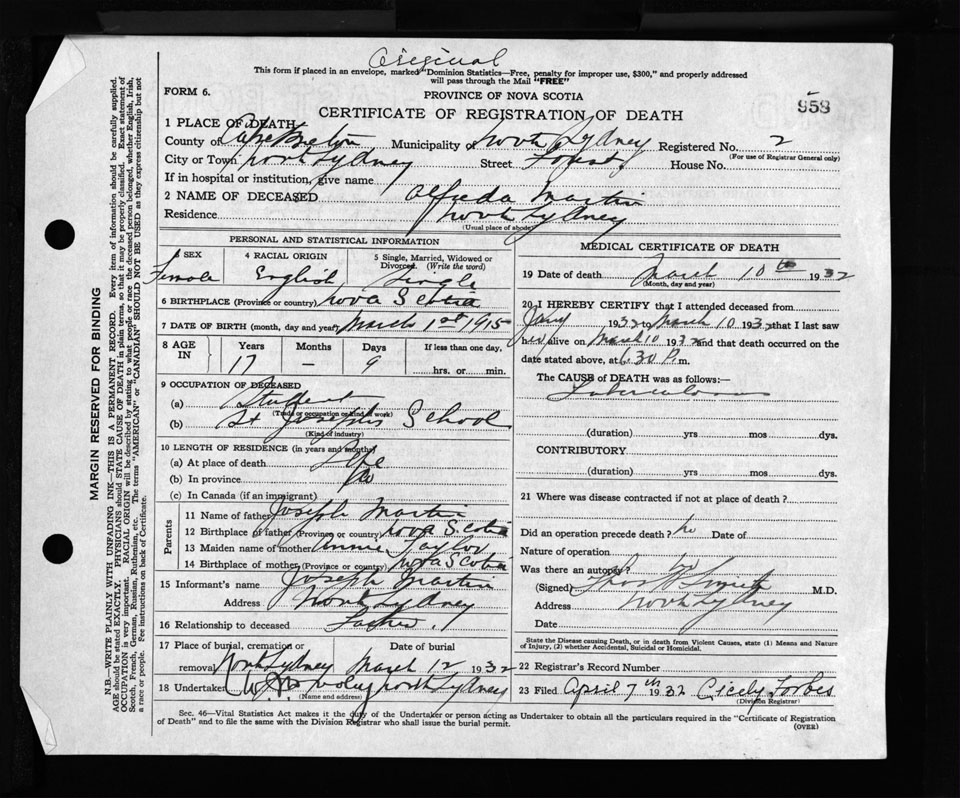 Original
This form if placed in an envelope, marked "Dominion Statistics—Free, penalty for improper use, $300," and properly addressed
will pass through the Mail "FREE"
FORM 6.
PROVINCE OF NOVA SCOTIA
958
CERTIFICATE OF REGISTRATION OF DEATH
1 PLACE OF DEATH
County of Cape Breton Municipality of North Sydney Registered No. 2
(For use of Registrar General only)
City or Town North Sydney Street Forest House No.
If in hospital or institution, give name
2 NAME OF DECEASED Alfreda Martin
Residence North Sydney
(Usual place of abode)
PERSONAL AND STATISTICAL INFORMATION
3 SEX Female
4 RACIAL ORIGIN English
5 Single, Married, Widowed or Divorced. (Write the word) Single
6 BIRTHPLACE (Province or country) Nova Scotia
7 DATE OF BIRTH (month, day and year) March 1st 1915
8 AGE IN Years Months Days If less than one day,
17 — 9 hrs. or min.
9 OCCUPATION OF DECEASED
(a) Student
(Trade or occupation or kind of work)
(b) St Josephs School
(Kind of industry)
10 LENGTH OF RESIDENCE (in years and months)
(a) At place of death Life
(b) In province Do
(c) In Canada (if an immigrant)
Parents
11 Name of father Joseph Martin
12 Birthplace of father (Province or country) Nova Scotia
13 Maiden name of mother Annie Taylor
14 Birthplace of mother (Province or country) Nova Scotia
15 Informant's name Joseph Martin
Address North Sydney
16 Relationship to deceased Father
17 Place of burial, cremation or removal North Sydney
Date of burial March 12 1932
18 Undertaker North Sydney
(Name and address)
MEDICAL CERTIFICATE OF DEATH
19 Date of death March 10th 1932
(Month, day and year)
20 I HEREBY CERTIFY that I attended deceased from
Jany 1932 to March 10 1932 that I last saw
her alive on March 10 1932 and that death occurred on the
date stated above, at 6.30 P.m.
The CAUSE of DEATH was as follows:—
Tuberculosis
(duration) yrs mos dys.
CONTRIBUTORY
(duration) yrs mos dys.
21 Where was disease contracted if not at place of death ?
Did an operation precede death ? no Date of
Nature of operation
Was there an autopsy ? no
(Signed) M.D.
Address North Sydney
Date
State the Disease causing Death, or in death from Violent Causes, state (1) Means and Nature
of Injury, (2) whether Accidental, Suicidal or Homicidal.
22 Registrar's Record Number
23 Filed April 7th 1932 Cicely Forbes
(Division Registrar)
Sec. 46—Vital Statistics Act makes it the duty of the Undertaker or person acting as Undertaker to obtain all the particulars required in the "Certificate of Registration
of Death" and to file the same with the Division Registrar who shall issue the burial permit.
(OVER)
MARGIN RESERVED FOR BINDING
N.B.—WRITE PLAINLY WITH UNFADING INK—THIS IS A PERMANENT RECORD. Every item of information should be carefully supplied.
AGE should be stated EXACTLY. PHYSICIANS should STATE CAUSE OF DEATH in plain terms, so that it may be properly classified. Exact statement of
OCCUPATION is very important. RACIAL ORIGIN will be described by stating to what people or race the deceased person belonged, whether English, Irish,
Scotch, French, German, Russian, Ruthenian, etc. The terms "AMERICAN" or "CANADIAN" SHOULD NOT BE USED as they express citizenship but not
a race or people. See instructions on back of Certificate.